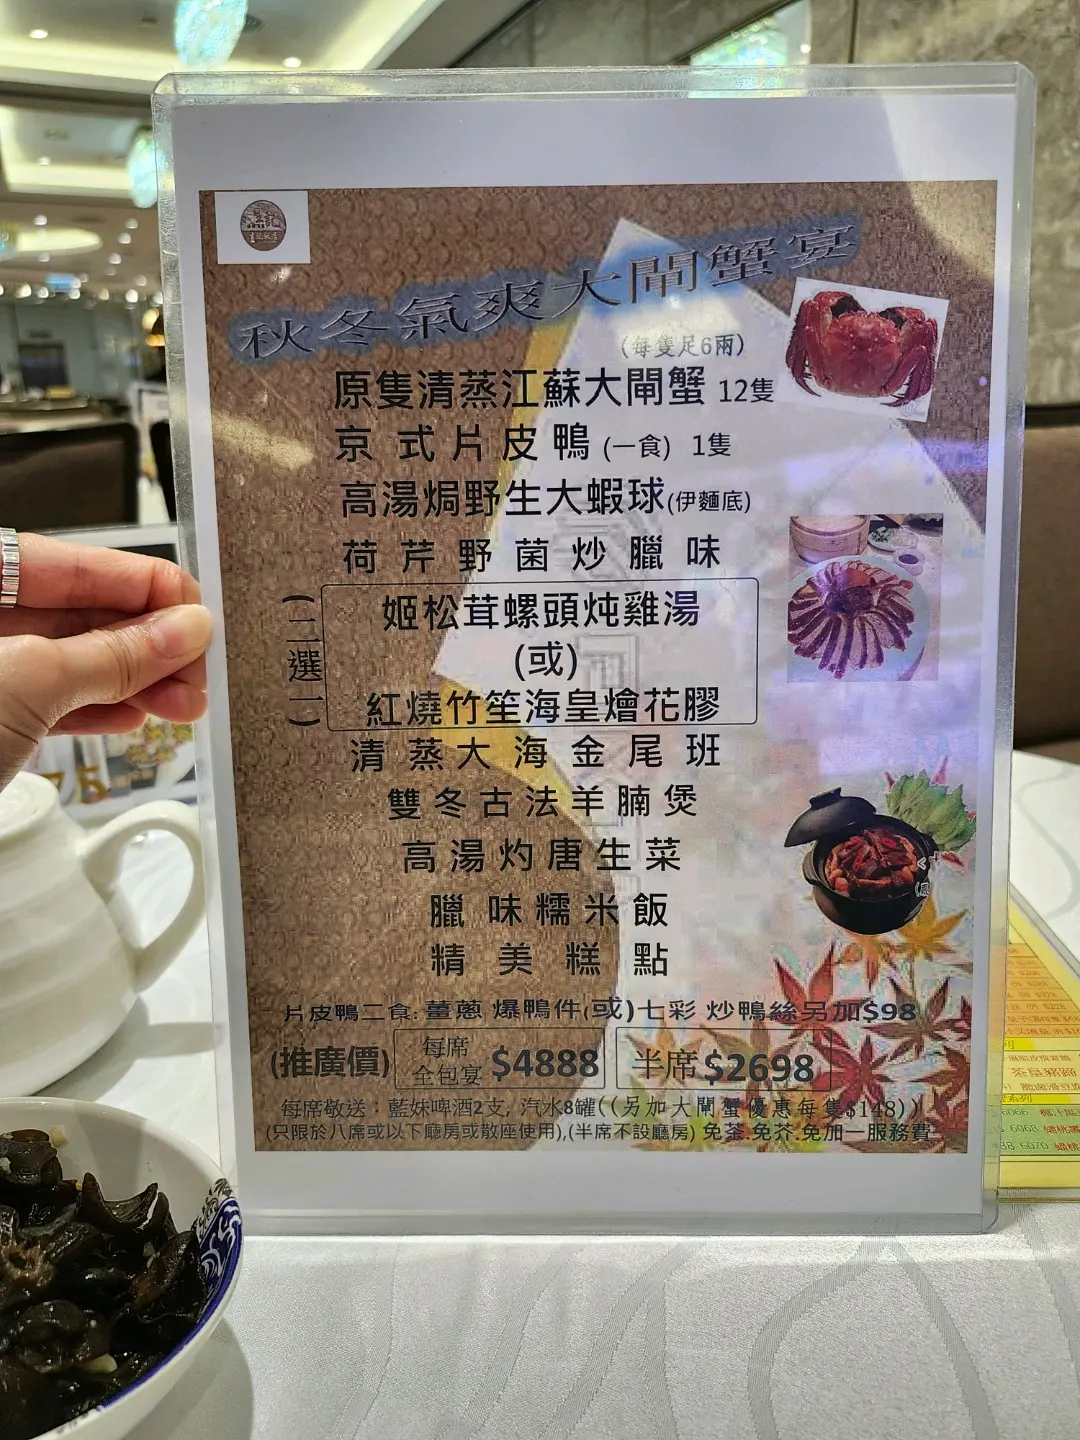 秋冬氣爽大閘蟹宴
(每隻足6兩)
原隻清蒸江蘇大閘蟹 12隻
京式片皮鴨 (一食) 1隻
高湯焗野生大蝦球(伊麵底)
荷芹野菌炒臘味
(二選一)
姬松茸螺頭炖雞湯
(或)
紅燒竹笙海皇燴花膠
清蒸大海金尾班
雙冬古法羊腩煲
高湯灼唐生菜
臘味糯米飯
精美糕點
片皮鴨二食: 薑蔥 爆鴨件(或)七彩 炒鴨絲另加$98
(推廣價) 每席全包宴 $4888 半席 $2698
每席敬送：藍妹啤酒2支, 汽水8罐((另加大閘蟹優惠每隻$148))
(只限於八席或以下廳房或散座使用),(半席不設廳房) 免茶.免芥.免加一服務費